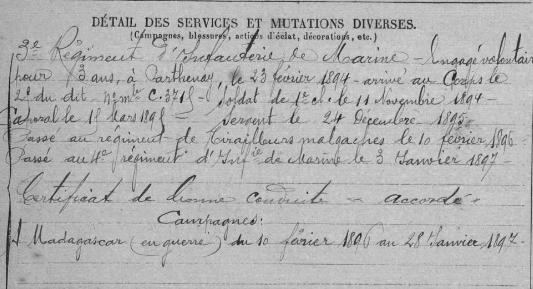 DÉTAIL DES SERVICES ET MUTATIONS DIVERSES.
(Campagnes, blessures, actions d'éclat, décorations, etc.)
3e Régiment d'Infanterie de Marine - Engagé volontaire
pour 3 ans, à Parthenay, le 23 février 1894 - arrivé au Corps le
2e du dit - No mle C. 3715 - Soldat de 1e cl. le 11 Novembre 1894 -
Caporal le 1e Mars 1895 - Sergent le 24 Décembre 1895 -
Passé au régiment de Tirailleurs malgaches le 10 février 1896 -
Passé au 4e régiment d'Infie de Marine le 3 Janvier 1897 -
Certificat de bonne conduite " accordé "
Campagnes:
Madagascar (en guerre) du 10 février 1896 au 28 Janvier 1897 -